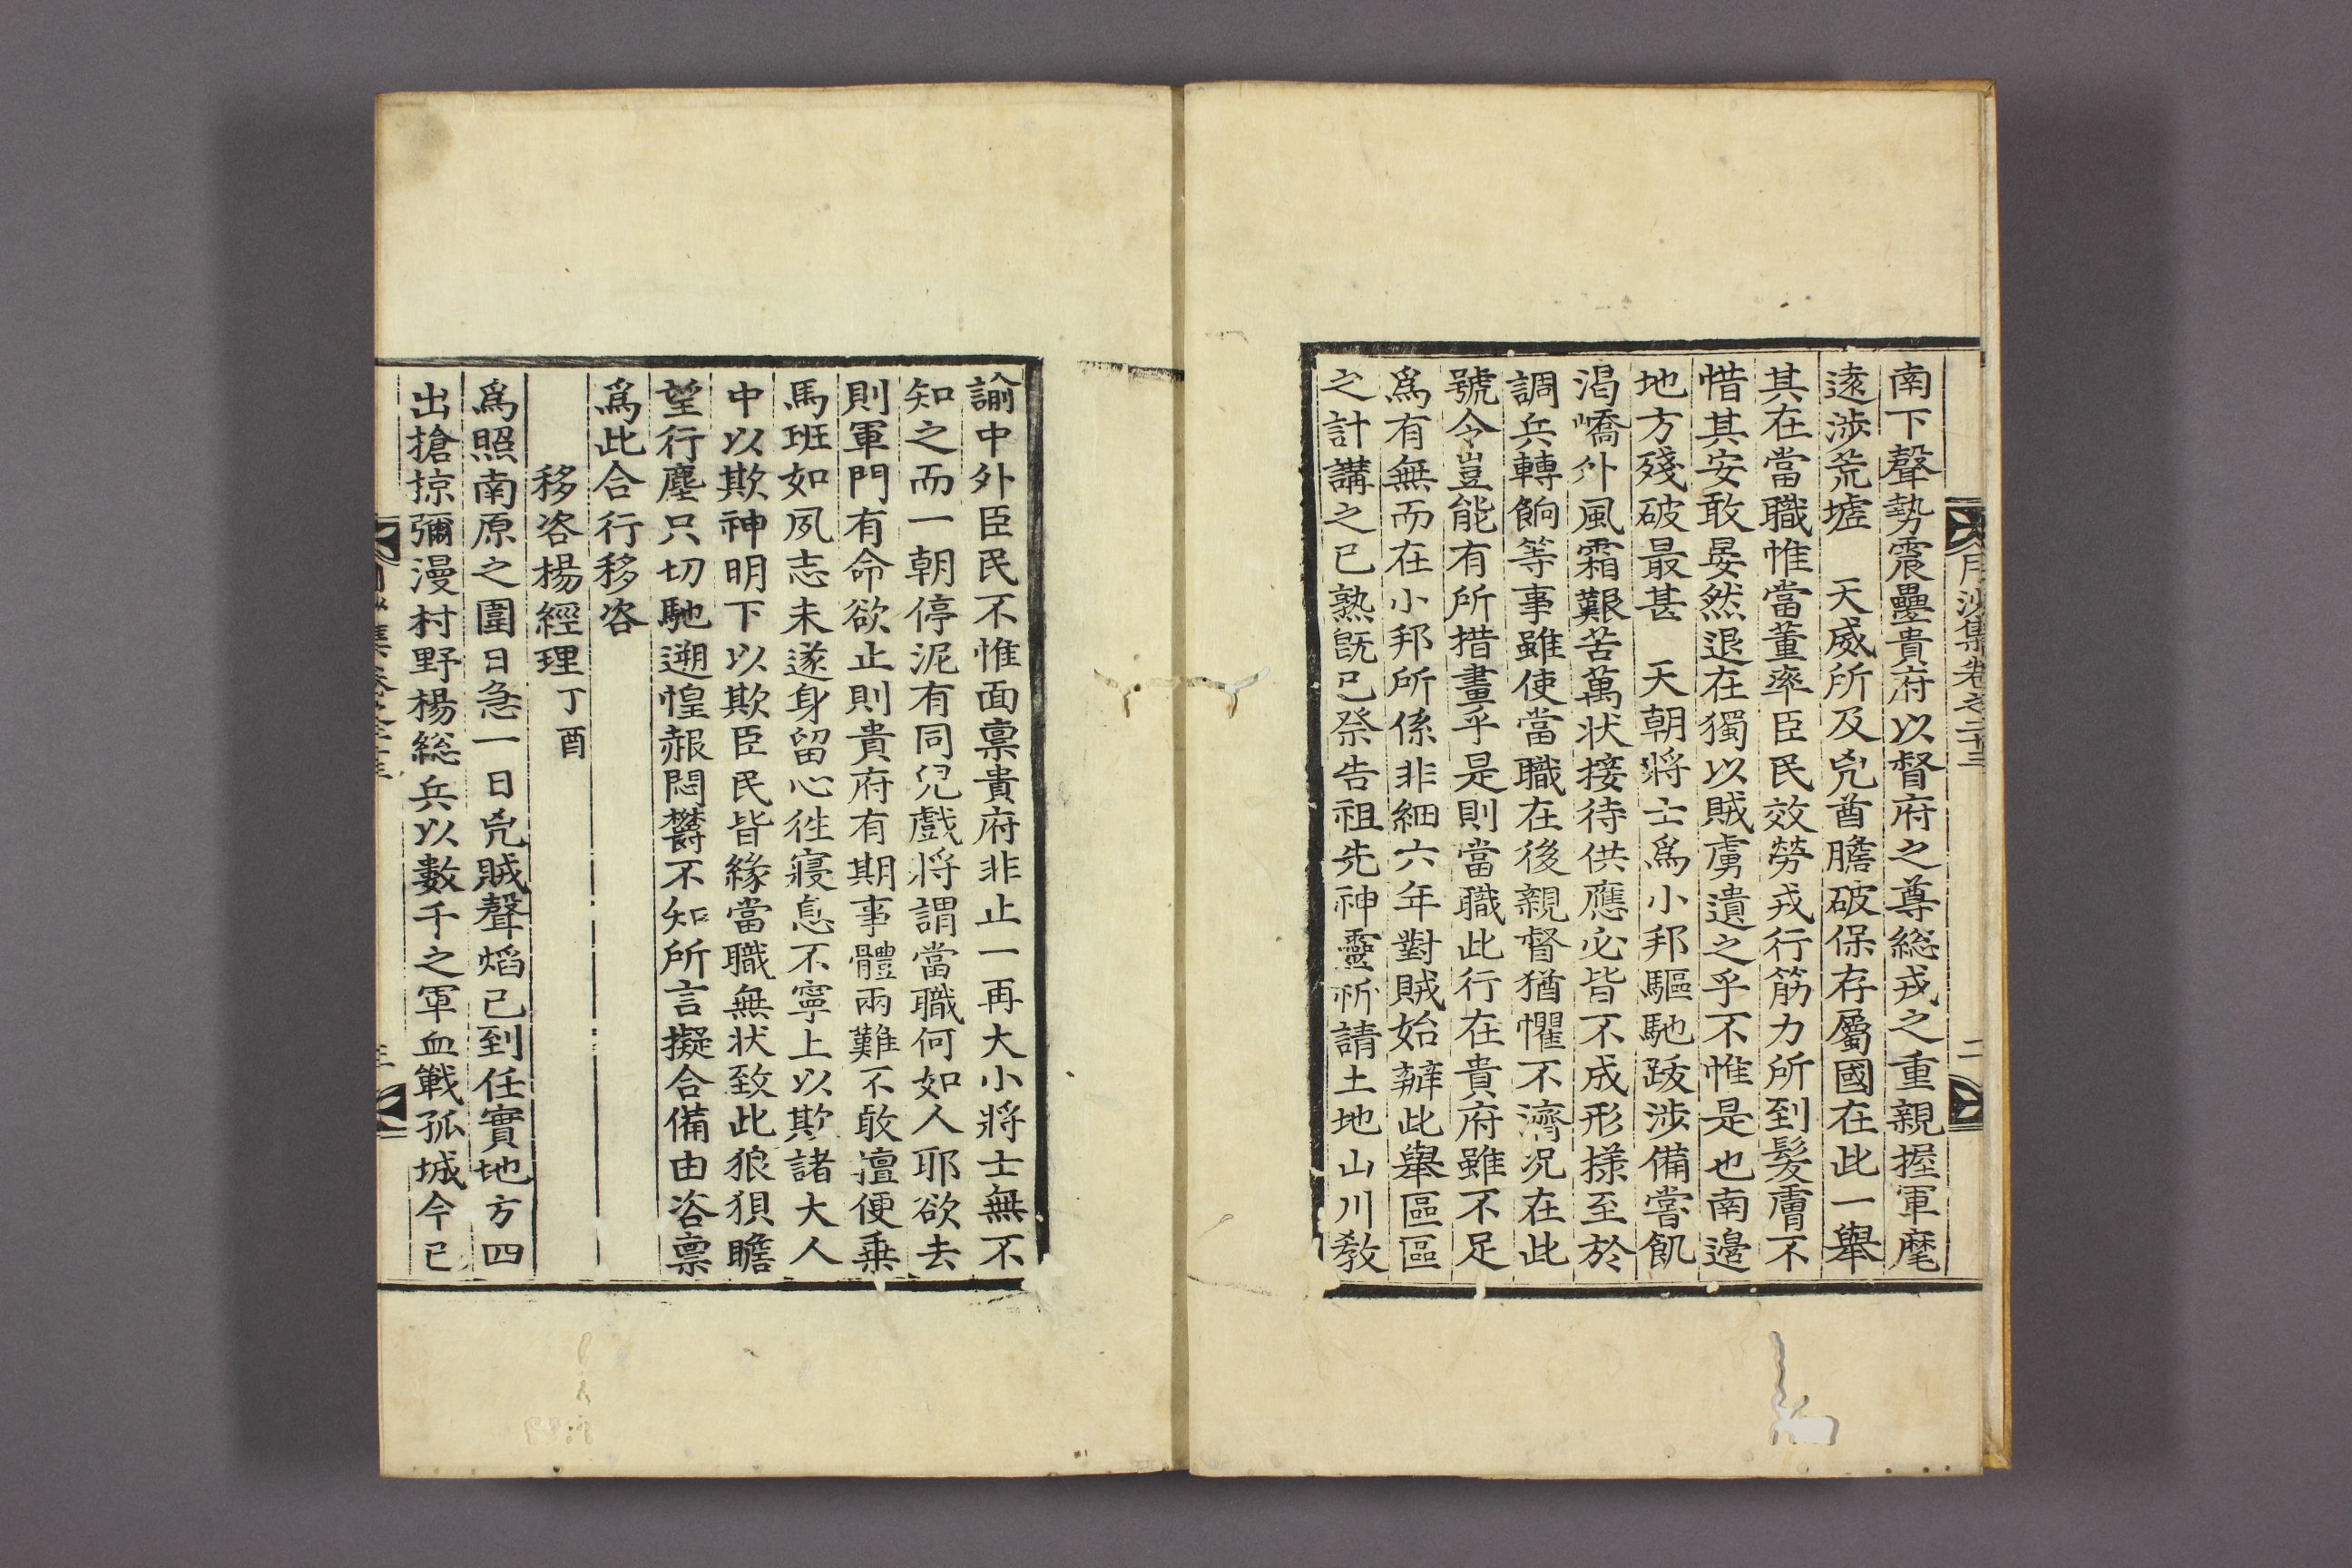 月沙集卷之二十三
二
南下聲勢震疊貴府以督府之尊総戎之重親握軍麾
遠涉荒墟　天威所及兇酋膽破保存屬國在此一舉
其在當職惟當董率臣民效勞戎行筋力所到髮膚不
惜其安敢晏然退在獨以賊虜遺之乎不惟是也南邊
地方殘破最甚　天朝將士爲小邦驅馳跋涉備嘗飢
渴嶠外風霜艱苦萬状接待供應必皆不成形㨾至於
調兵轉餉等事雖使當職在後親督猶懼不濟况在此
號令豈能有所措畫乎是則當職此行在貴府雖不足
爲有無而在小邦所係非細六年對賊始辦此舉區區
之計講之已熟旣已祭告祖先神靈祈請土地山川敎
諭中外臣民不惟面禀貴府非止一再大小將士無不
知之而一朝停泥有同兒戲將謂當職何如人耶欲去
則軍門有命欲止則貴府有期事體兩難不敢擅便乗
馬班如夙志未遂身留心徃寢息不寧上以欺諸大人
中以欺神明下以欺臣民皆緣當職無状致此狼狽瞻
望行塵只切馳遡惶赧悶欝不知所言擬合備由咨禀
爲此合行移咨
移咨楊經理丁酉
爲照南原之圍日急一日兇賊聲焰已到任實地方四
出搶掠彌漫村野楊総兵以數千之軍血戰孤城今已